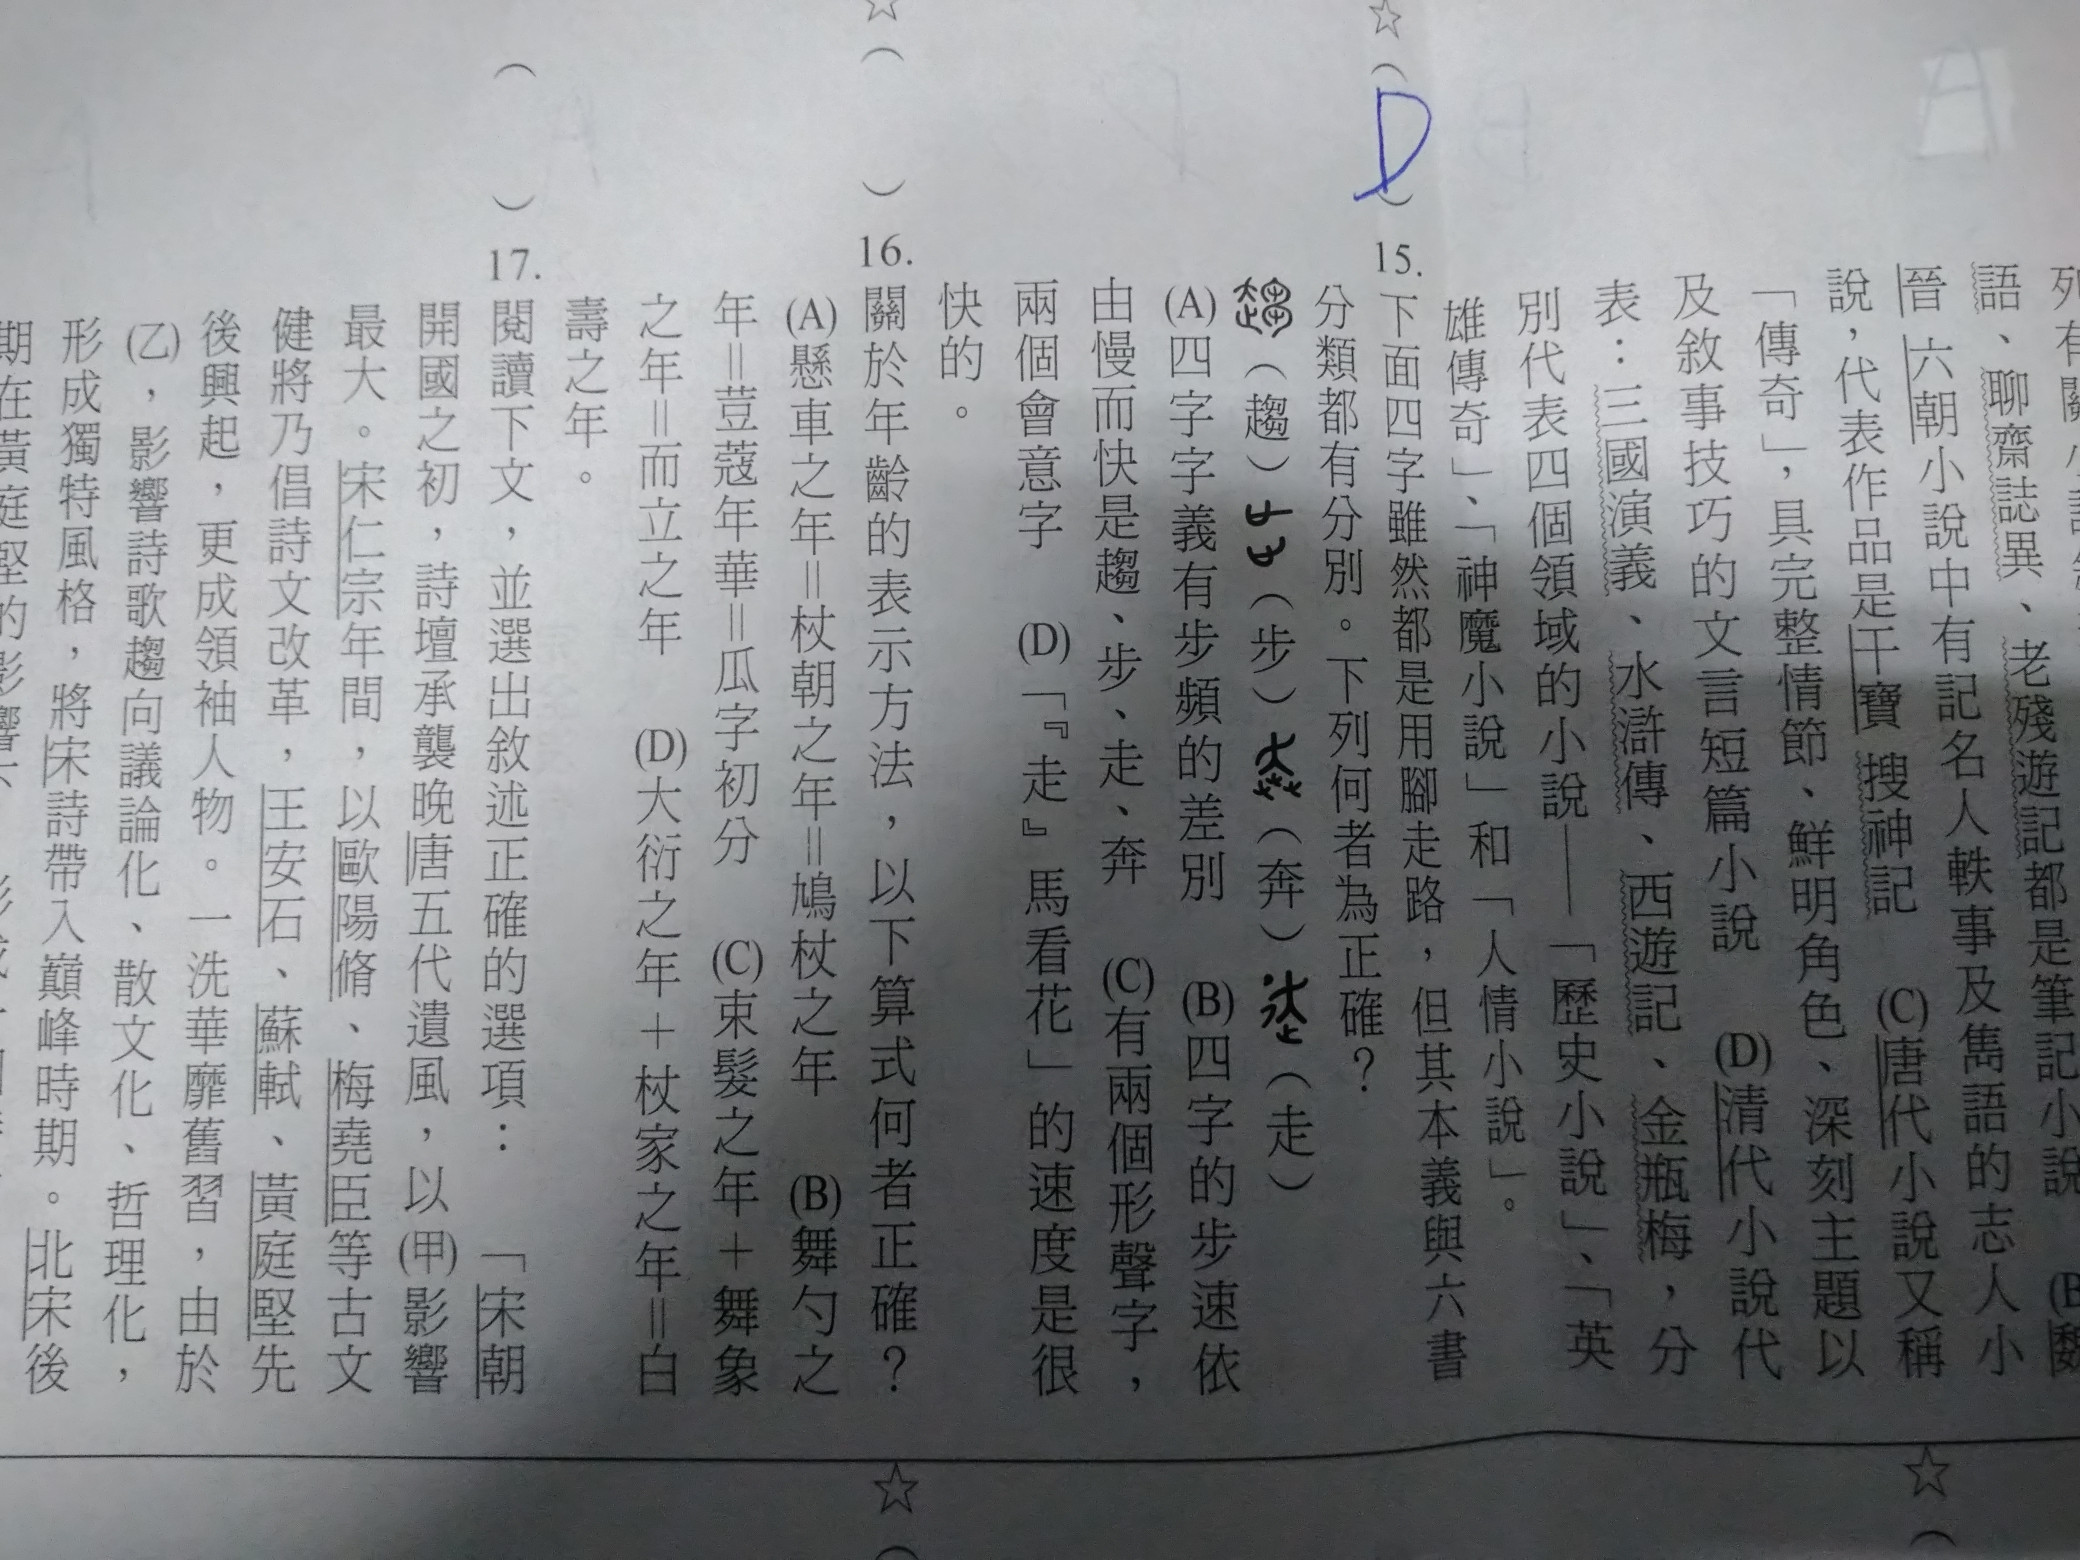 語、聊齋誌異、老殘遊記都是筆記小說
晉 六朝小說中有記名人軼事及雋語的志人小
說，代表作品是干寶 搜神記 (C)唐代小說又稱
「傳奇」，具完整情節、鮮明角色、深刻主題以
及敘事技巧的文言短篇小說 (D)清代小說代
表：三國演義、水滸傳、西遊記、金瓶梅，分
別代表四個領域的小說——「歷史小說」、「英
雄傳奇」、「神魔小說」和「人情小說」。
☆( D )15.下面四字雖然都是用腳走路，但其本義與六書
分類都有分別。下列何者為正確？
(趨) (步) (奔) (走)
(A)四字字義有步頻的差別 (B)四字的步速依
由慢而快是趨、步、走、奔 (C)有兩個形聲字，
兩個會意字 (D)「『走』馬看花」的速度是很
快的。
☆( )16.關於年齡的表示方法，以下算式何者正確？
(A)懸車之年＝杖朝之年＝鳩杖之年 (B)舞勺之
年＝荳蔻年華＝瓜字初分 (C)束髮之年＋舞象
之年＝而立之年 (D)大衍之年＋杖家之年＝白
壽之年。
( )17.閱讀下文，並選出敘述正確的選項： 「宋朝
開國之初，詩壇承襲晚唐五代遺風，以(甲)影響
最大。宋仁宗年間，以歐陽脩、梅堯臣等古文
健將乃倡詩文改革，王安石、蘇軾、黃庭堅先
後興起，更成領袖人物。一洗華靡舊習，由於
(乙)，影響詩歌趨向議論化、散文化、哲理化，
形成獨特風格，將宋詩帶入巔峰時期。北宋後
期在黃庭堅的影響下
☆(
☆(